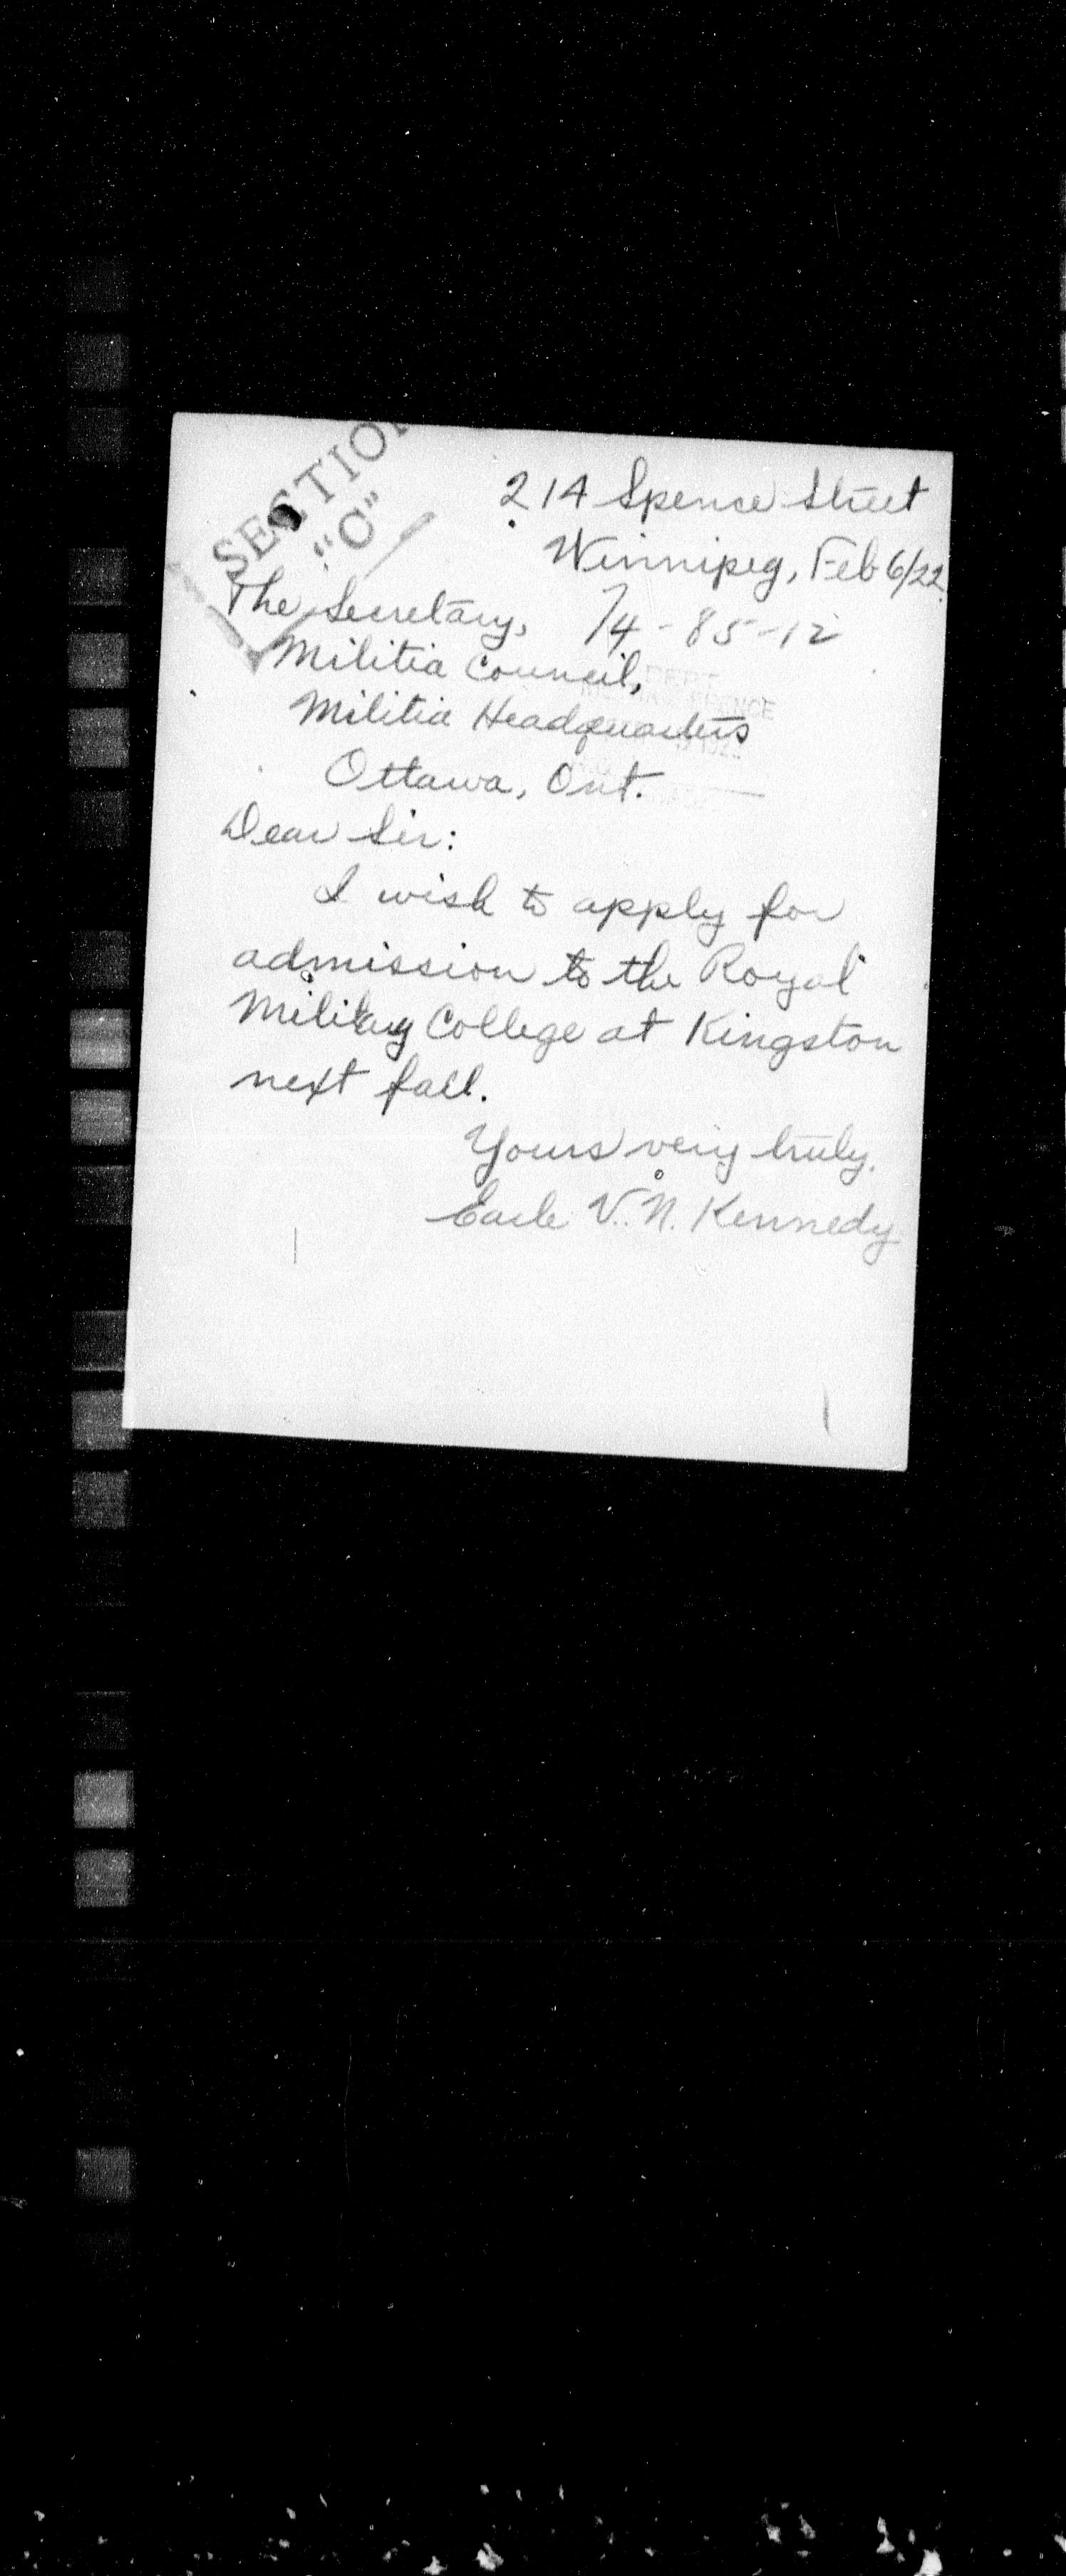 SECTION
"O"
214 Spence Street
Winnipeg, Feb 6/22.
The Secretary, 74-85-12
Militia Council,
Militia Headquarters
Ottawa, Ont.
Dear Sir:
I wish to apply for
admission to the Royal
Military College at Kingston
next fall.
Yours very truly,
Earle V. N. Kennedy